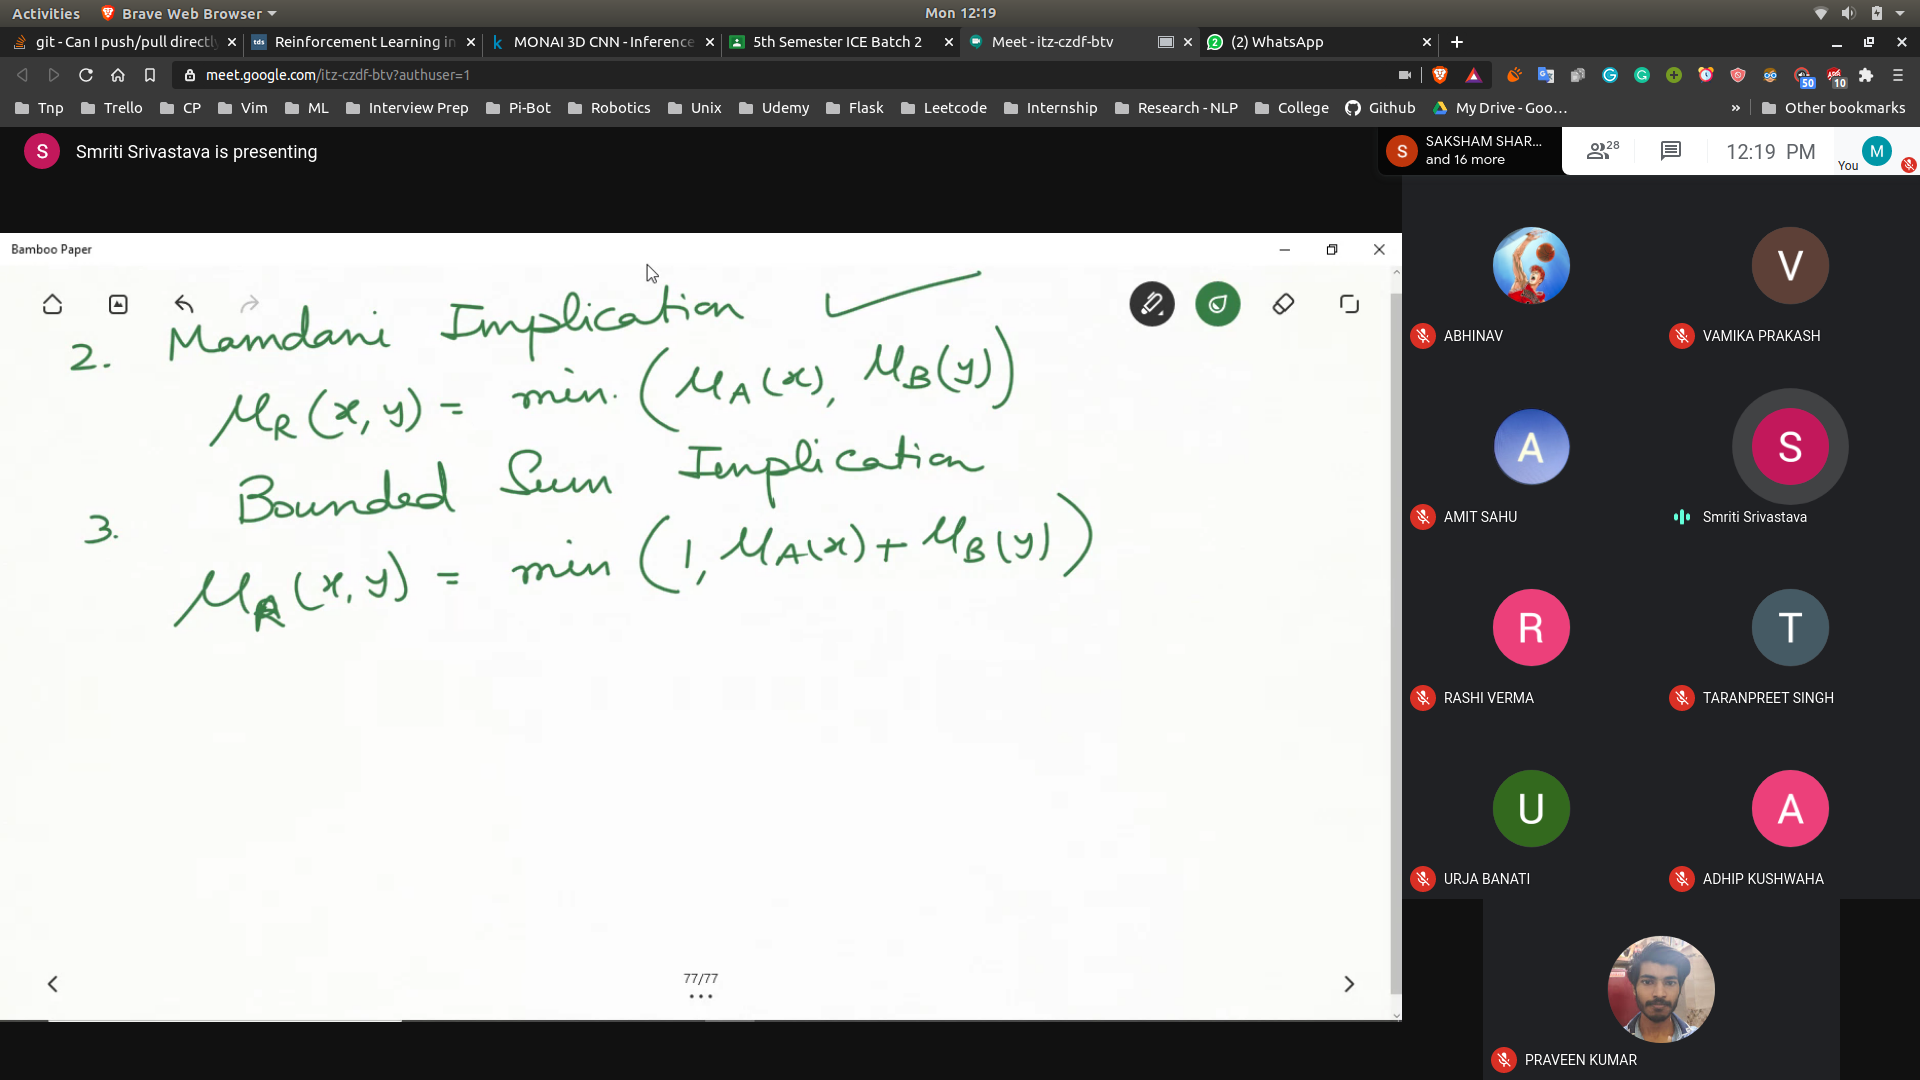 Activities Brave Web Browser Mon 12:19
git - Can I push/pull directly Reinforcement Learning in MONAI 3D CNN - Inference 5th Semester ICE Batch 2 Meet - itz-czdf-btv (2) WhatsApp
meet.google.com/itz-czdf-btv?authuser=1 50 10
Tnp Trello CP Vim ML Interview Prep Pi-Bot Robotics Unix Udemy Flask Leetcode Internship Research - NLP College Github My Drive - Goo... » Other bookmarks
S Smriti Srivastava is presenting
S SAKSHAM SHAR...
and 16 more
28 12:19 PM You M
Bamboo Paper
2. Mamdani Implication
μR(x, y) = min. (μA(x), μB(y))
3. Bounded Sum Implication
μR(x, y) = min (1, μA(x) + μB(y))
77/77
V
ABHINAV VAMIKA PRAKASH
A S
AMIT SAHU Smriti Srivastava
R T
RASHI VERMA TARANPREET SINGH
U A
URJA BANATI ADHIP KUSHWAHA
PRAVEEN KUMAR